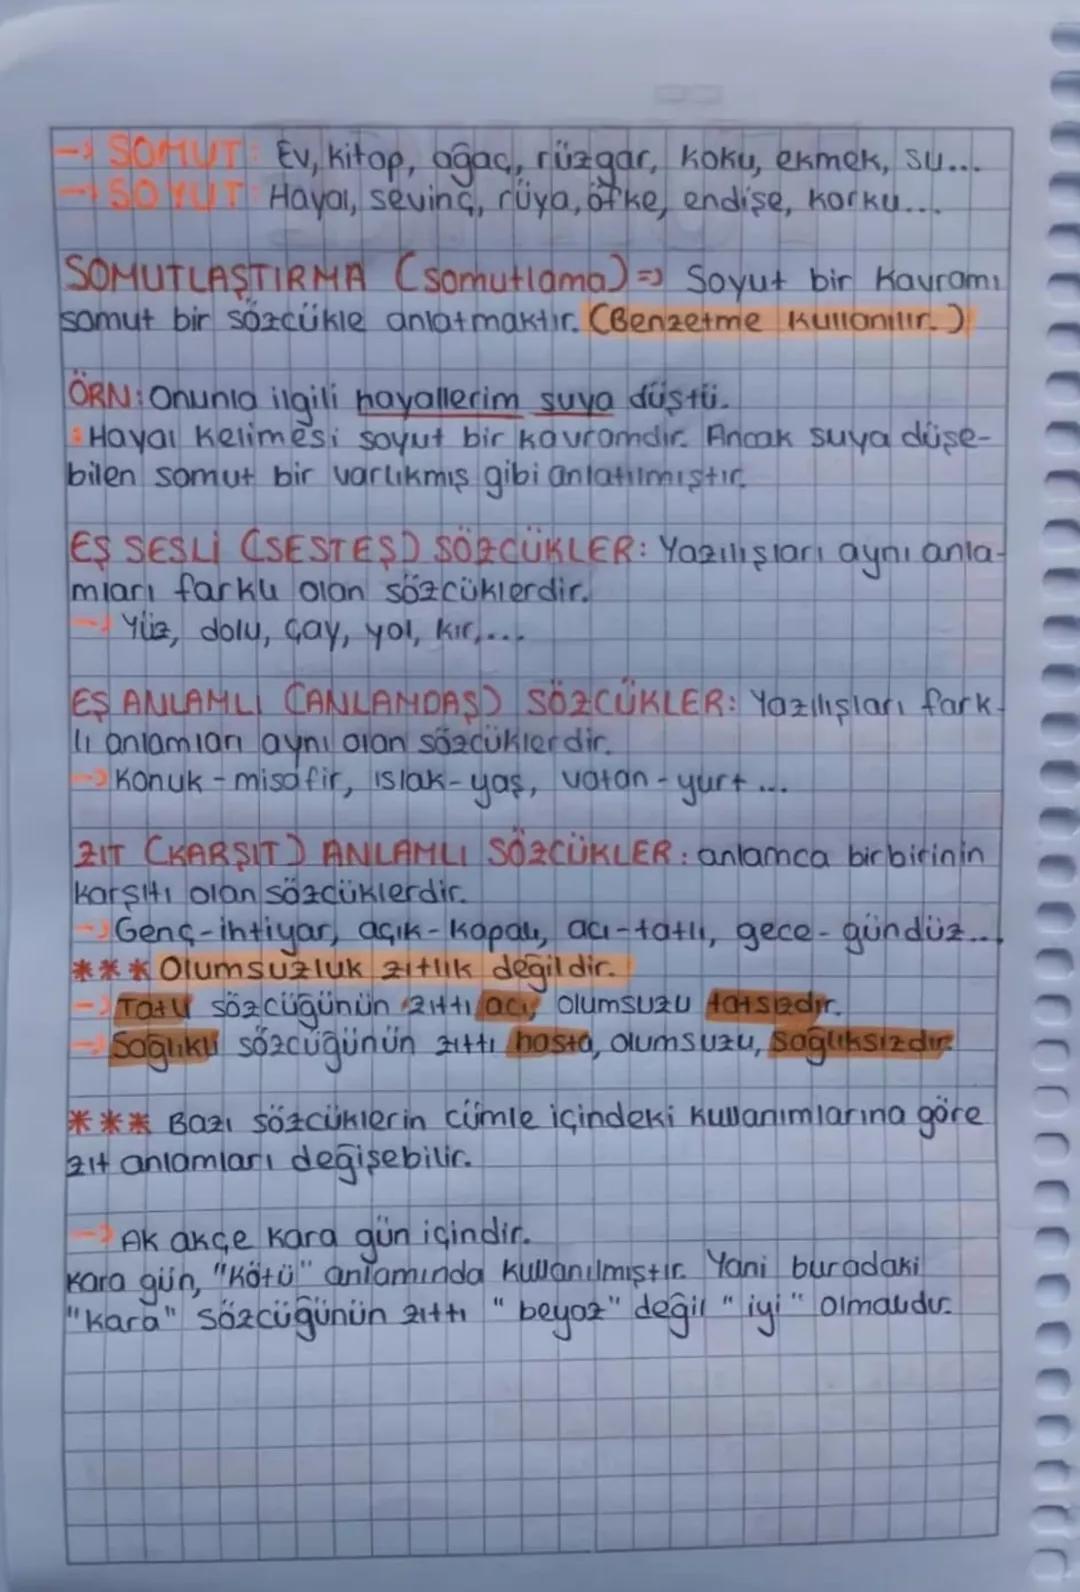 → SOMUT: Ev, kitap, ağaç, rüzgar, koku, ekmek, su...
→ SOYUT: Hayal, sevinç, rüya, öfke, endişe, korku...
SOMUTLAŞTIRMA (somutlama) => Soyut bir kavramı
somut bir sözcükle anlatmaktır. (Benzetme kullanılır.)
ÖRN: Onunla ilgili hayallerim suya düştü.
: Hayal kelimesi soyut bir kavramdır. Ancak suya düşe-
bilen somut bir varlıkmış gibi anlatılmıştır.
EŞ SESLİ (SESTEŞ) SÖZCÜKLER: Yazılışları aynı anla-
mları farklı olan sözcüklerdir.
→ Yüz, dolu, çay, yol, kır,...
EŞ ANLAMLI (ANLAMDAŞ) SÖZCÜKLER: Yazılışları fark-
lı anlamları aynı olan sözcüklerdir.
→ Konuk - misafir, ıslak - yaş, vatan - yurt ...
ZIT (KARŞIT) ANLAMLI SÖZCÜKLER: anlamca birbirinin
karşıtı olan sözcüklerdir.
→ Genç - ihtiyar, açık - kapalı, acı - tatlı, gece - gündüz...
*** Olumsuzluk zıtlık değildir.
→ Tatlı sözcüğünün zıttı acı, olumsuzu tatsızdır.
→ Sağlıklı sözcüğünün zıttı hasta, olumsuzu, sağlıksızdır.
*** Bazı sözcüklerin cümle içindeki kullanımlarına göre
zıt anlamları değişebilir.
→ Ak akçe kara gün içindir.
Kara gün, "kötü" anlamında kullanılmıştır. Yani buradaki
"kara" sözcüğünün zıttı "beyaz" değil "iyi" olmalıdır.